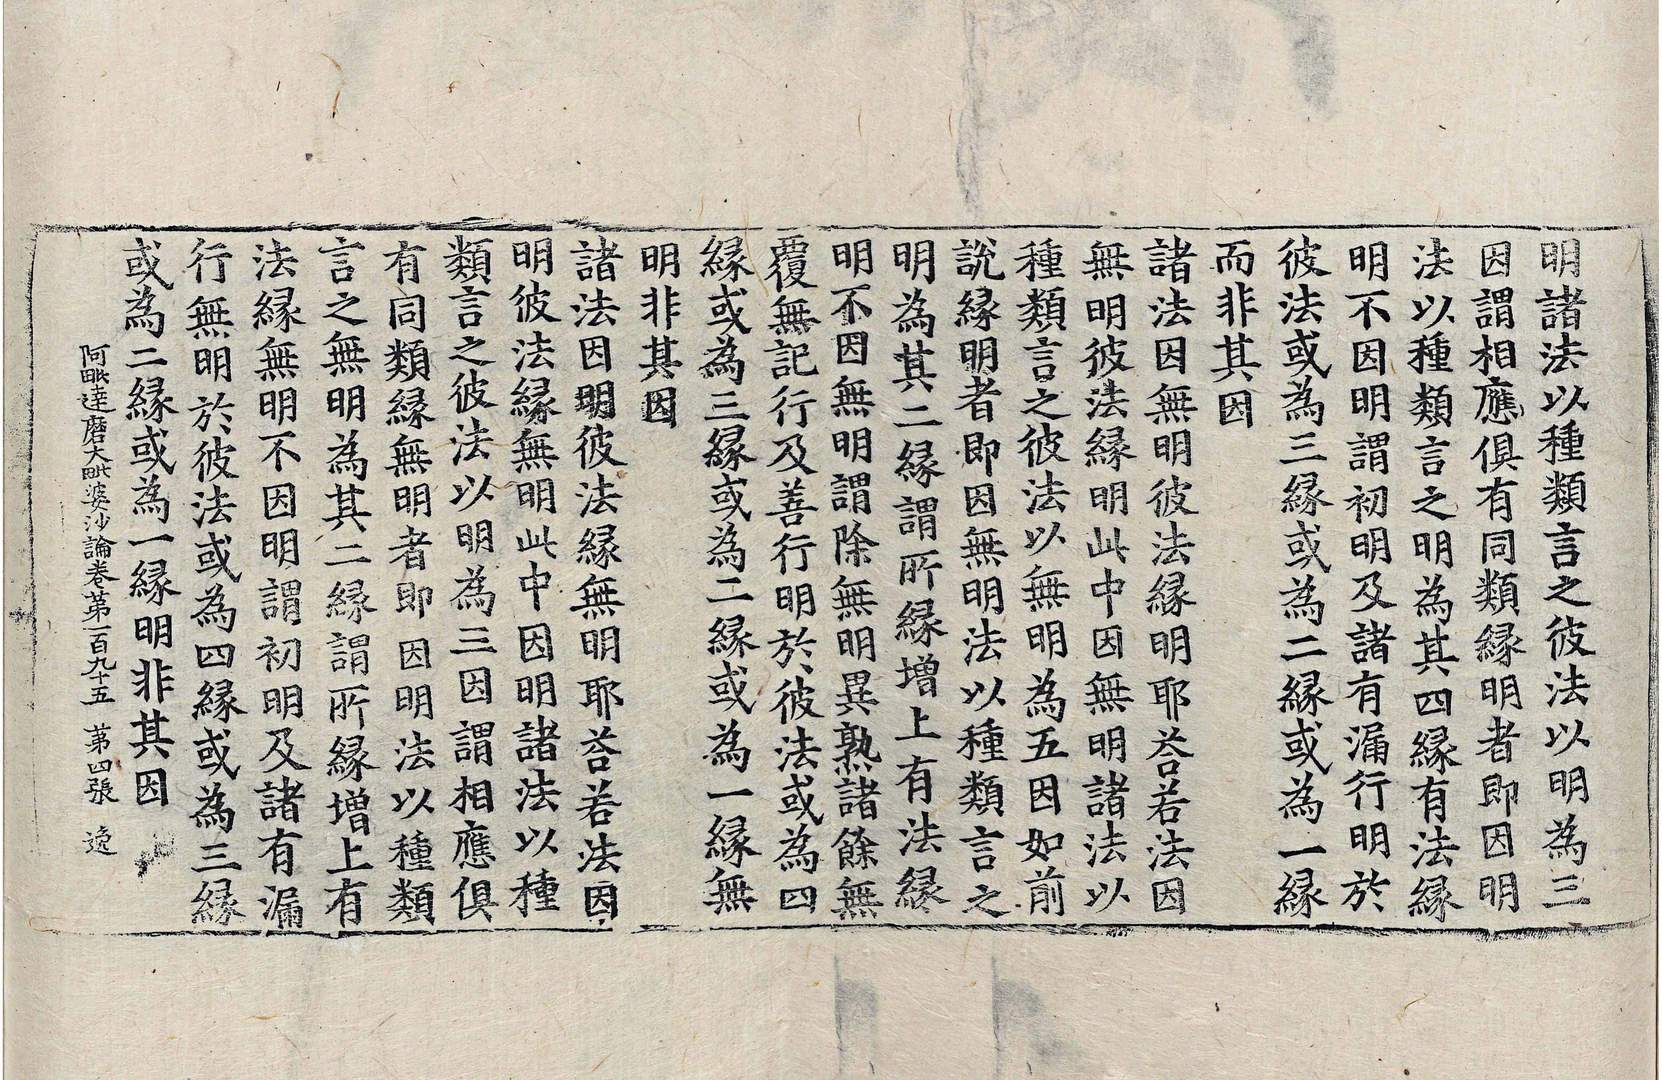 明諸法以種類言之彼法以明為三
因謂相應俱有同類縁明者即因明
法以種類言之明為其四縁有法縁
明不因明謂初明及諸有漏行明於
彼法或為三縁或為二縁或為一縁
而非其因
諸法因無明彼法縁明耶荅若法因
無明彼法縁明此中因無明諸法以
種類言之彼法以無明為五因如前
說縁明者即因無明法以種類言之
明為其二縁謂所縁增上有法縁
明不因無明謂除無明異熟諸餘無
覆無記行及善行明於彼法或為四
縁或為三縁或為二縁或為一縁無
明非其因
諸法因明彼法縁無明耶荅若法因
明彼法縁無明此中因明諸法以種
類言之彼法以明為三因謂相應俱
有同類縁無明者即因明法以種類
言之無明為其二縁謂所縁增上有
法縁無明不因明謂初明及諸有漏
行無明於彼法或為四縁或為三縁
或為二縁或為一縁明非其因
阿毗達磨大毗婆沙論卷苐一百九十五 苐四張 逸